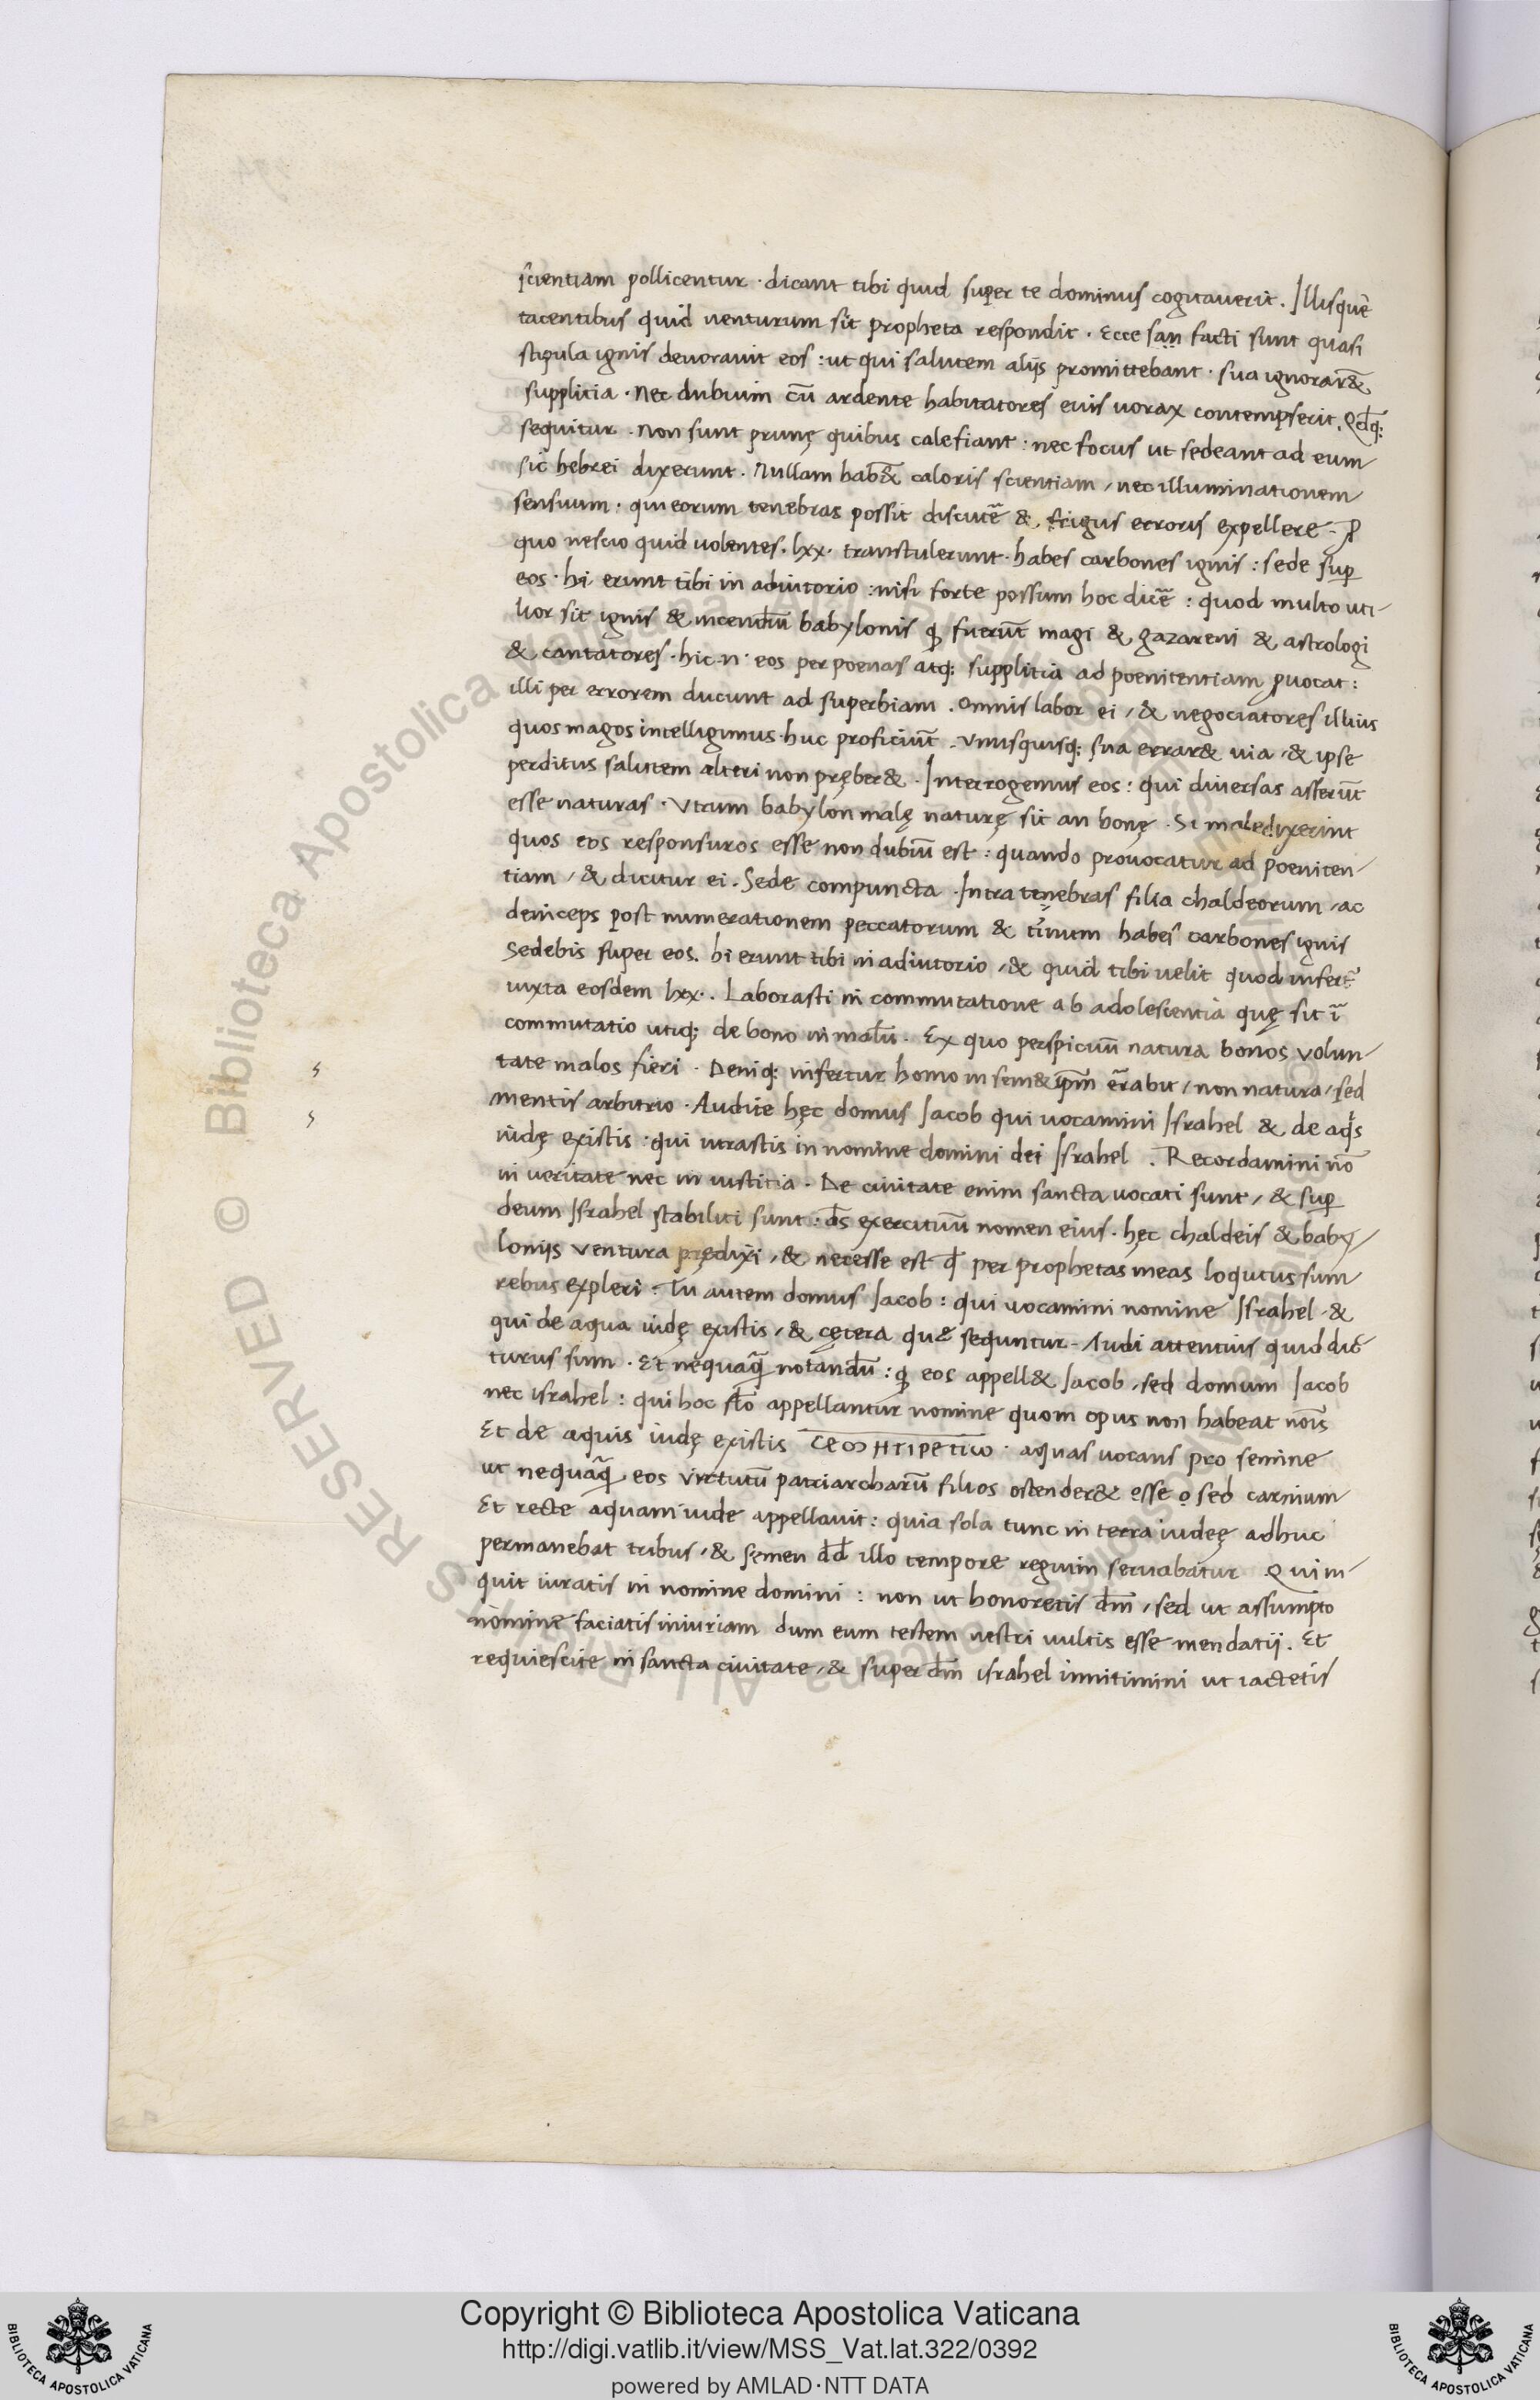 scientiam pollicentur · dicant tibi quid super te dominus cogitauerit. Illisque
tacentibus quid uenturum sit propheta respondit · Ecce san facti sunt quasi
stipula ignis deuorauit eos : ut qui salutem alijs promittebant · sua ignorar&̅
supplicia · Nec dubium cū ardente habitatores euis uorax contempserit. Qd̅q;
sequitur . Non sunt prunę quibus calefiant · nec focus ut sedeant ad eum
sic hebrei dixerunt . Nullam hab&̅ caloris scientiam / nec illuminationem
sensuum : qui eorum tenebras possit discutē & frigus erroris expellere · ꝓ
quo nescio quid uolentes · lxx · transtulerunt · habes carbones ignis : sede suꝑ
eos · hi erunt tibi in adiutorio : nisi forte possum hoc dicē : quod multo uti-
lior sit ignis & incendiū babylonis ꝙ fuerūt magi & gazareni & astrologi
& cantatores · hic · n · eos per poenas atq; supplicia ad poenitentiam ꝓuocat :
illi per errorem ducunt ad superbiam . Omnis labor ei / & negociatores illius
quos magos intelligimus · huc proficiūt . Vnusquisq; sua errar& uia / & ipse
perditus salutem alteri non pręber& . Interrogemus eos : qui diuersas asserūt
esse naturas · Vtrum babylon malę naturę sit an bonę . Si male dixerint
quos eos responsuros esse non dubiū est : quando prouocatur ad poeniten-
tiam / & dicitur ei . Sede compuncta . Intra tenebras filia chaldeorum / ac
deinceps post numerationem peccatorum & habes carbones ignis
Sedebis super eos. hi erunt tibi in adiutorio / & quid tibi uelit quod infert̃
iuxta eosdem lxx · . Laborasti in commutatione ab adolescentia quę sit ĩ
commutatio utiq; de bono in malū . Ex quo perspicuū natura bonos volun-
tate malos fieri · Deniq; infertur homo in sem&ip̅m er̃abit / non natura / sed
mentis arbitrio · Audite hęc domus Iacob qui uocamini Israhel & de aq̇s
iudę existis : qui iurastis in nomine domini dei Israhel . Recordamini nō
in veritate nec in iustitia . De ciuitate enim sancta uocati sunt / & suꝑ
deum Israhel stabiliti sunt : d̅s exercituū nomen eius . hęc chaldeis & baby-
loniis ventura prędixi / & necesse est q̅ per prophetas meas loqutus sum
rebus expleri : Tu autem domus Iacob : qui uocamini nomine Israhel · &
qui de aqua iudę existis / & cętera quę sequntur - Audi attentius quid dic-
turus sum · Et nequaq̃ notandū : ꝙ eos appell& Iacob / sed domum Iacob
nec israhel : qui hoc fl̅o appellantur nomine quom opus non habeat nōis
Et de aquis iudę existis CEωHΓIPETIω · aquas uocans pro semine
ut nequaq̃ eos virtutū patriarcharū filios ostender& esse o sed carnium
Et recte aquam iude appellauit : quia sola tunc in terra iudeę adhuc
permanebat tribus / & semen d̅d̅ illo tempore regum seruabatur Qui in-
quit iuratis in nomine domini : non ut honoretis d̅m̅ / sed ut assumpto
nomine faciatis iniuriam dum eum testem uestri uultis esse mendatij . Et
requiescite in sancta ciuitate / & super d̅m̅ israhel innitimini ut iactetis
Copyright © Biblioteca Apostolica Vaticana
http://digi.vatlib.it/view/MSS_Vat.lat.322/0392
powered by AMLAD·NTT DATA
BIBLIOTECA APOSTOLICA VATICANA
BIBLIOTECA APOSTOLICA VATICANA